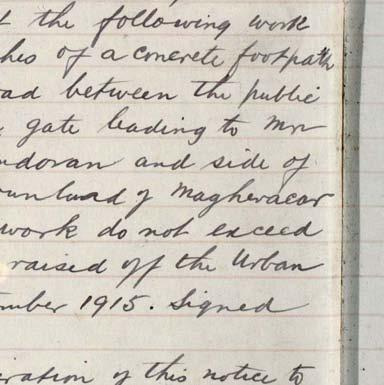 the following work
hes of a concrete footpath
ad between the public
gate leading to Mr
ndoran and side of
ownland of Magheracar
work do not exceed
raised off the Urban
mber 1915. Signed
eration of this notice to